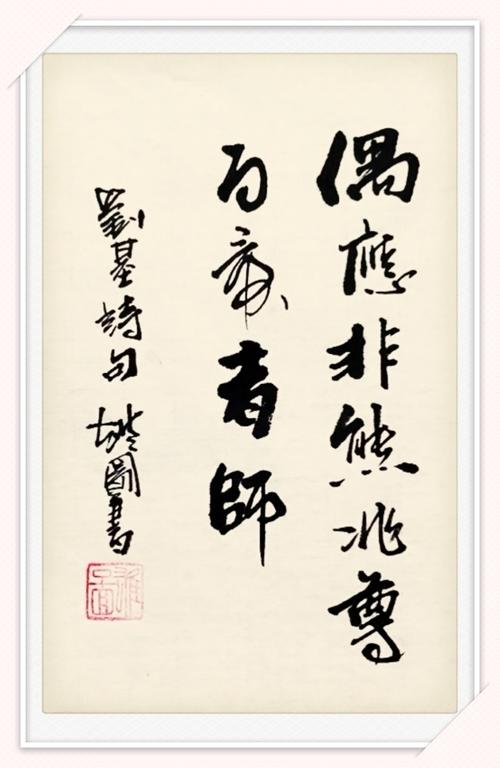 偶應非熊兆尊
為帝者師
劉基詩句 圖書